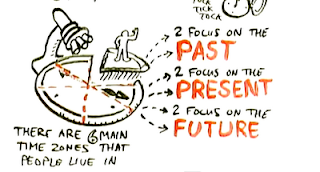 TICK
TOCK
2 FOCUS ON THE
PAST
2 FOCUS ON THE
PRESENT
2 FOCUS ON THE
FUTURE
THERE ARE 6 MAIN
TIME ZONES THAT
PEOPLE LIVE IN